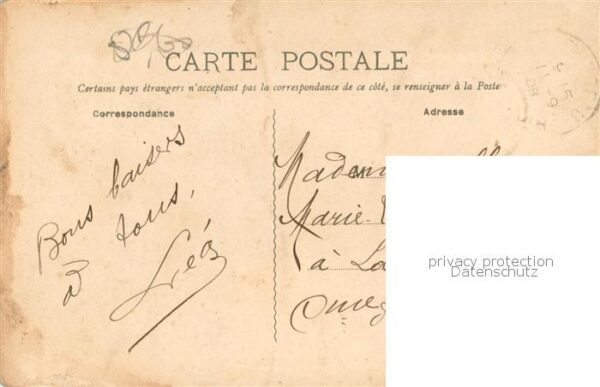 CARTE POSTALE
Certains pays étrangers n'acceptant pas la correspondance de ce côté, se renseigner à la Poste
Correspondance
Adresse
Bons baisers
à tous,
Léa
Marie
à La
privacy protection
Datenschutz